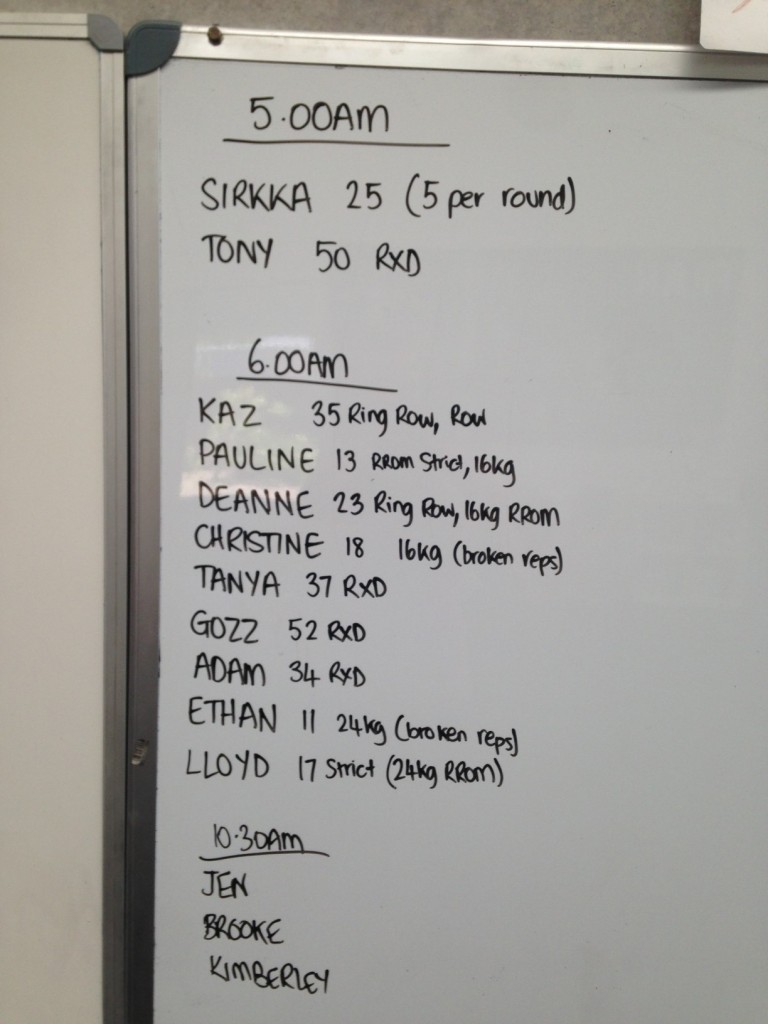 5.00AM
SIRKKA 25 (5 per round)
TONY 50 RXD
6.00AM
KAZ 35 Ring Row, Row
PAULINE 13 RROM Strict, 16kg
DEANNE 23 Ring Row, 16kg RROM
CHRISTINE 18 16kg (broken reps)
TANYA 37 RXD
GOZZ 52 RXD
ADAM 34 RXD
ETHAN 11 24kg (broken reps)
LLOYD 17 Strict (24kg RROM)
10.30AM
JEN
BROOKE
KIMBERLEY